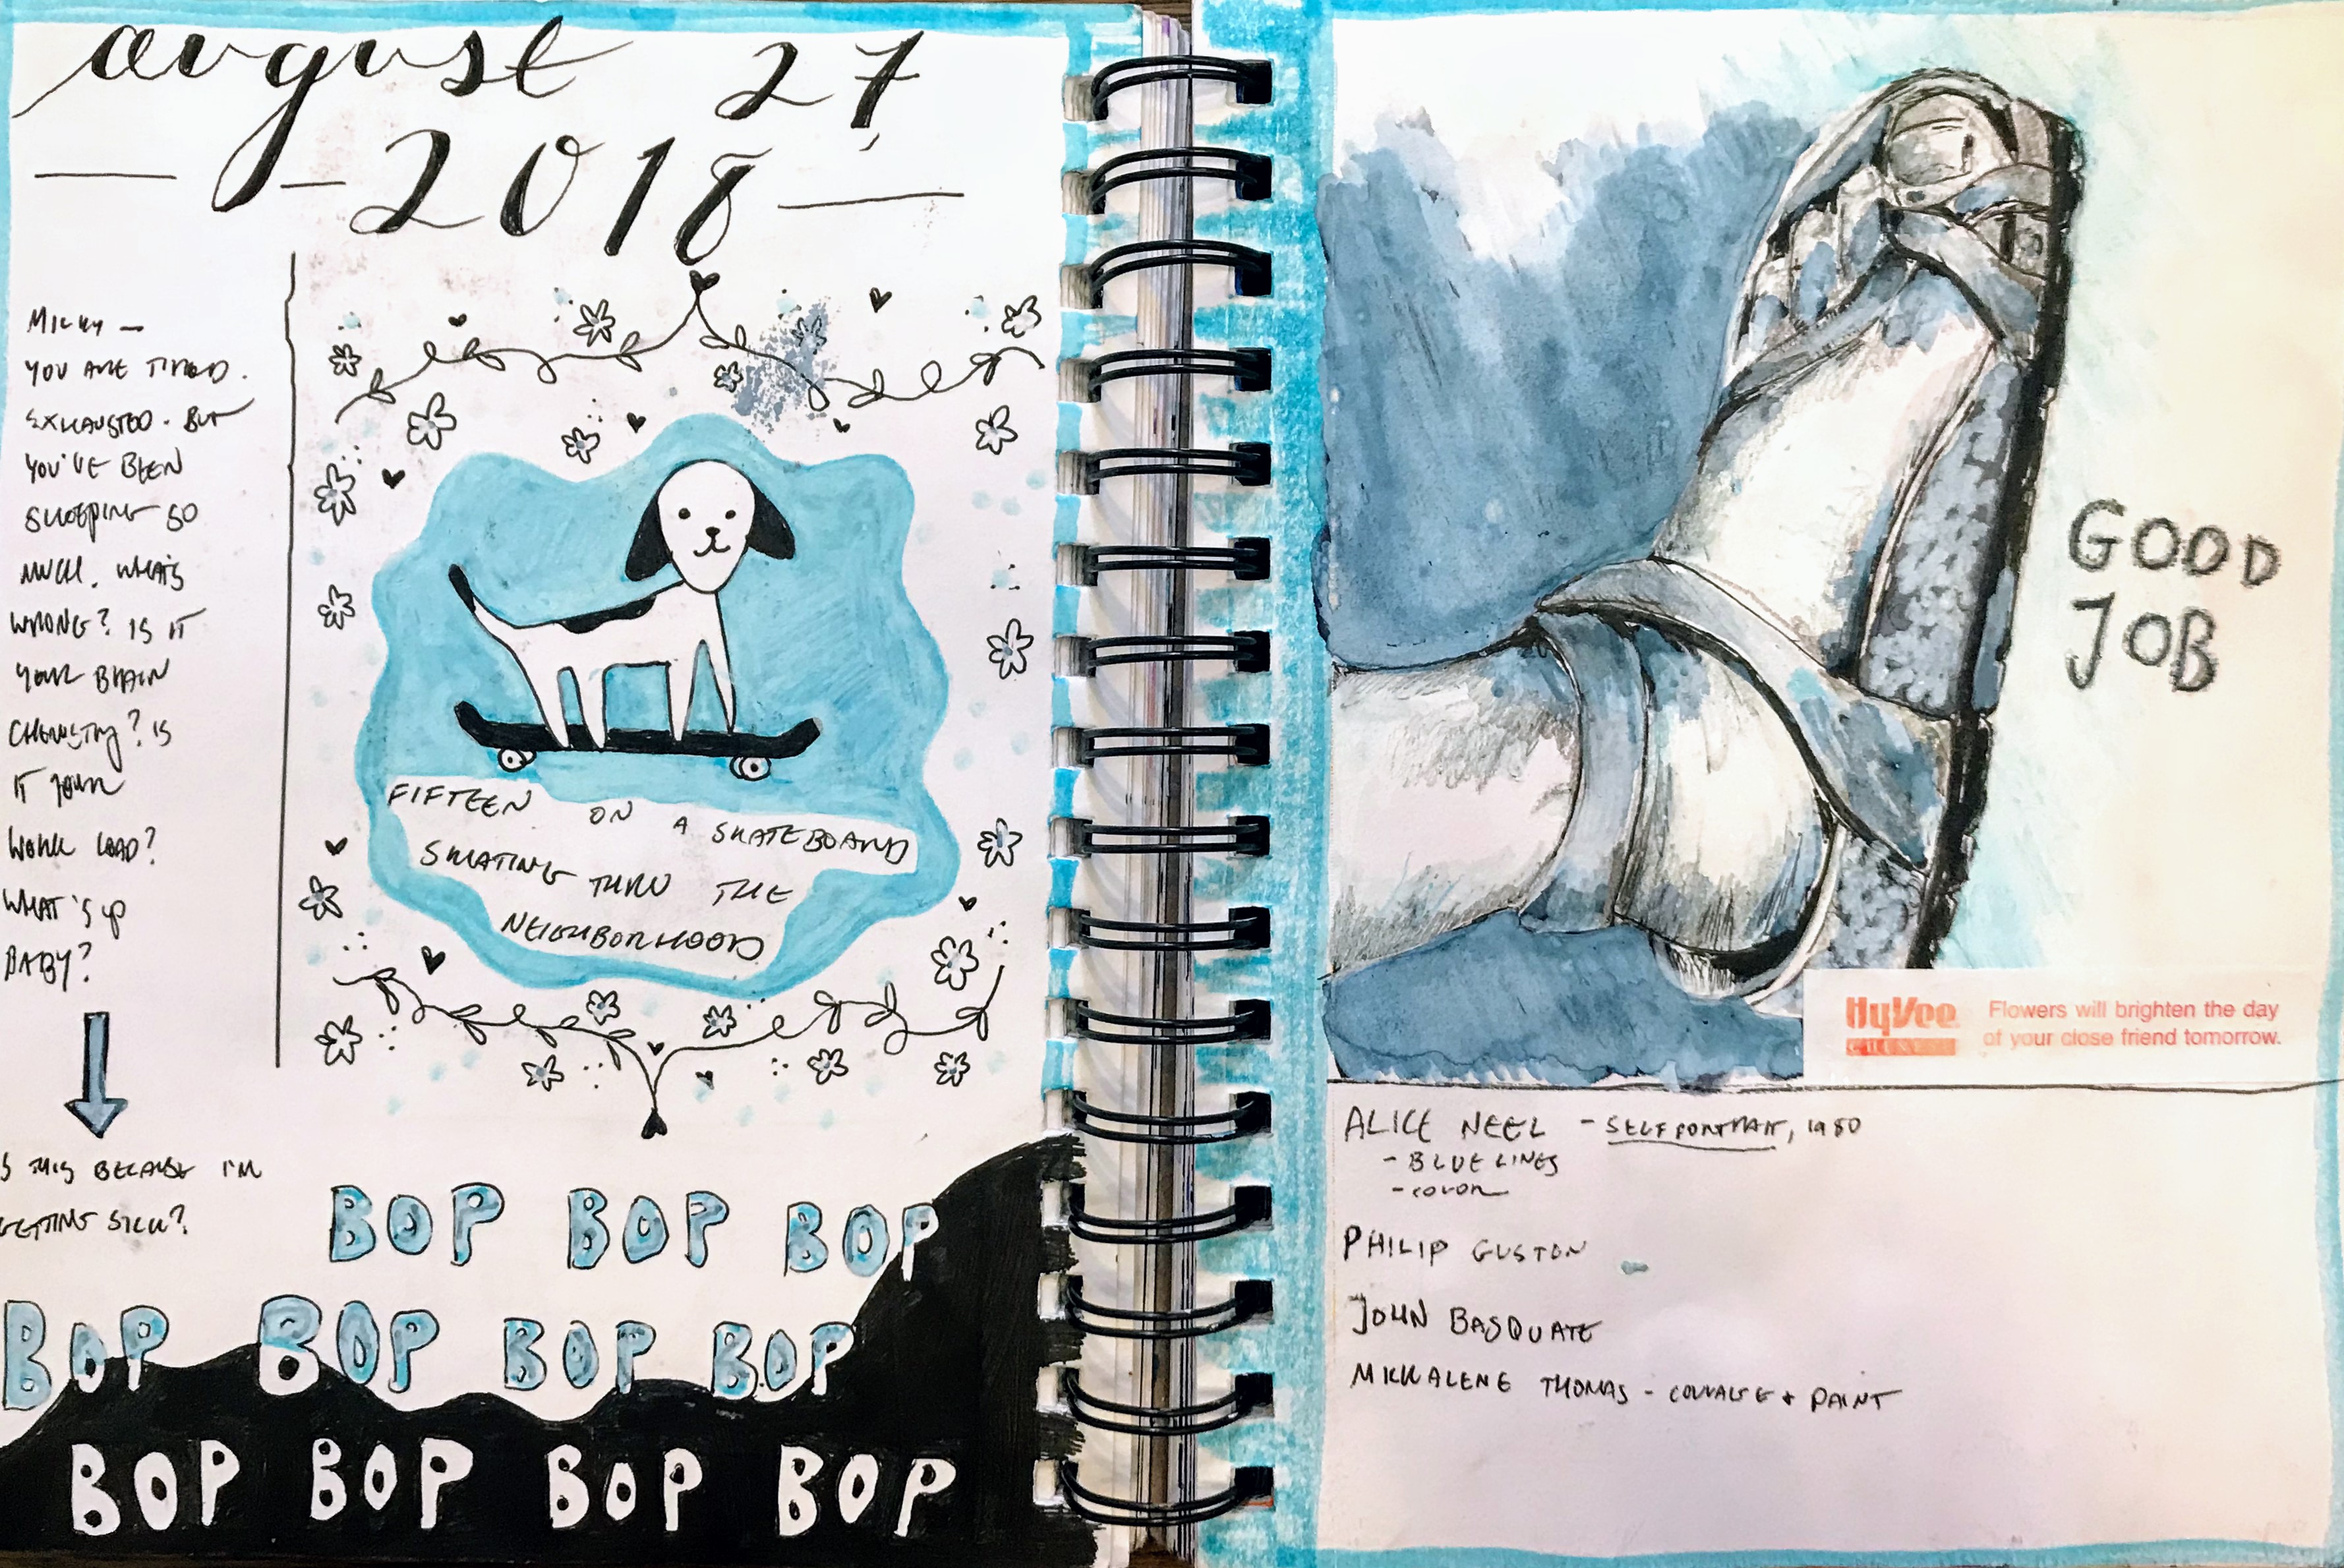 august 27
2018
MICKY —
YOU ARE TIRED.
EXHAUSTED. BUT
YOU'VE BEEN
SLEEPING SO
MUCH. WHATS
WRONG? IS IT
YOUR BRAIN
CHEMISTRY? IS
IT YOUR
WORK LOAD?
WHAT'S UP
BABY?
S THIS BECAUSE I'M
GETTING SICK?
FIFTEEN ON A SKATEBOARD
SKATING THRU THE
NEIGHBORHOOD
BOP BOP BOP
BOP BOP BOP BOP
BOP BOP BOP BOP
GOOD
JOB
HyVee
Flowers will brighten the day
of your close friend tomorrow.
ALICE NEEL - SELF PORTRAIT, 1980
- BLUE LINES
- COLOR
PHILIP GUSTON
JOHN BASQUATE
MIKKALENE THOMAS - COLLAGE + PAINT